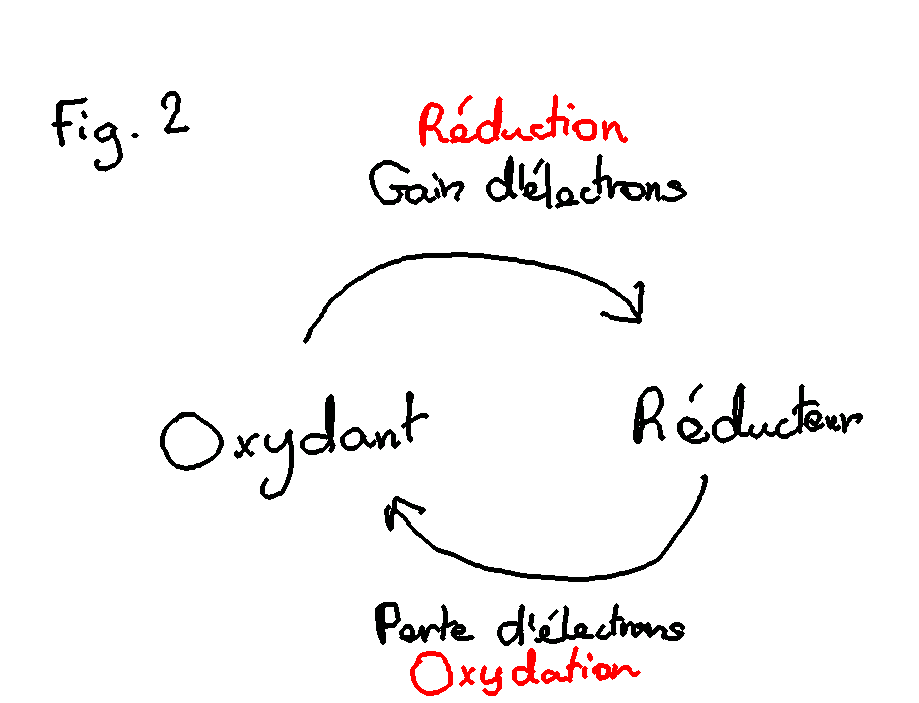 Fig. 2
Réduction
Gain d'électrons
Oxydant
Réducteur
Perte d'électrons
Oxydation